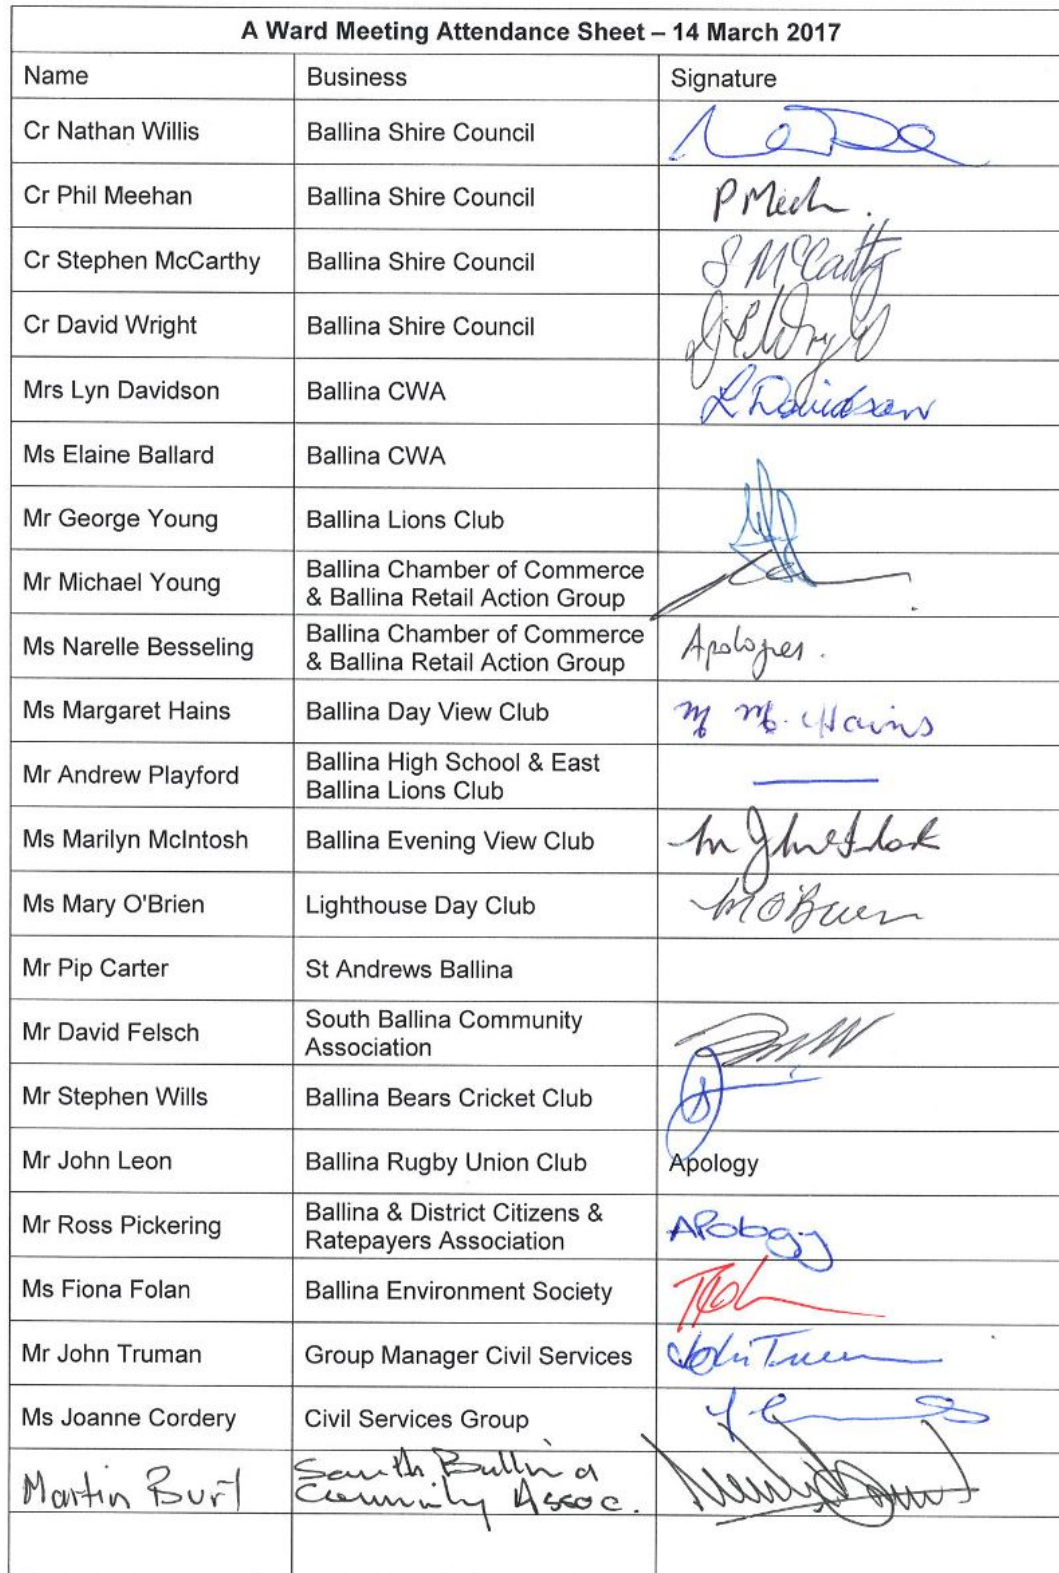 A Ward Meeting Attendance Sheet – 14 March 2017
Name Business Signature
Cr Nathan Willis Ballina Shire Council
Cr Phil Meehan Ballina Shire Council P Meeh.
Cr Stephen McCarthy Ballina Shire Council S McCarthy
Cr David Wright Ballina Shire Council
Mrs Lyn Davidson Ballina CWA L Davidson
Ms Elaine Ballard Ballina CWA
Mr George Young Ballina Lions Club
Mr Michael Young Ballina Chamber of Commerce
& Ballina Retail Action Group
Ms Narelle Besseling Ballina Chamber of Commerce
& Ballina Retail Action Group Apologies.
Ms Margaret Hains Ballina Day View Club M M. Hains
Mr Andrew Playford Ballina High School & East
Ballina Lions Club
Ms Marilyn McIntosh Ballina Evening View Club
Ms Mary O'Brien Lighthouse Day Club M O'Brien
Mr Pip Carter St Andrews Ballina
Mr David Felsch South Ballina Community
Association
Mr Stephen Wills Ballina Bears Cricket Club
Mr John Leon Ballina Rugby Union Club Apology
Mr Ross Pickering Ballina & District Citizens &
Ratepayers Association APology
Ms Fiona Folan Ballina Environment Society
Mr John Truman Group Manager Civil Services John Truman
Ms Joanne Cordery Civil Services Group
Martin Burt South Ballina
Community Assoc.